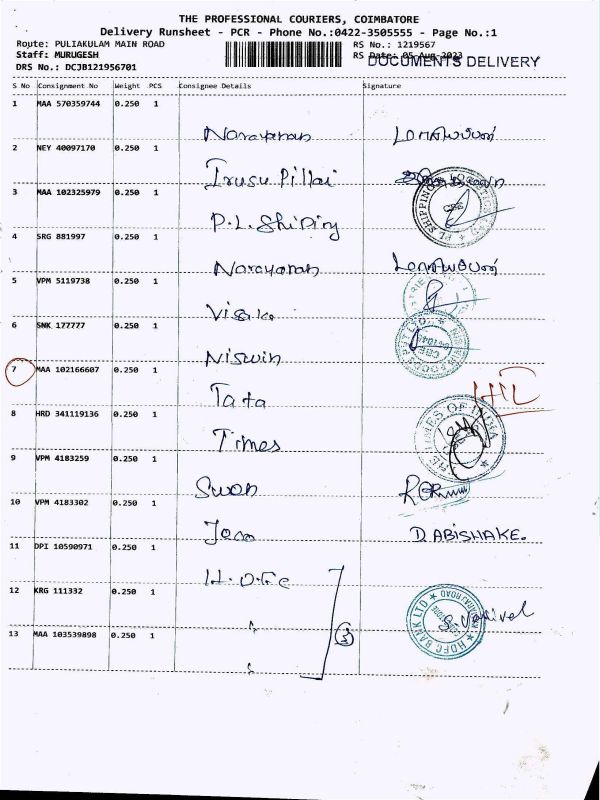 THE PROFESSIONAL COURIERS, COIMBATORE
Delivery Runsheet - PCR - Phone No.:0422-3505555 - Page No.:1
Route: PULIAKULAM MAIN ROAD
RS No.: 1219567
Staff: MURUGESH
RS Date: 05-Aug-2023
DOCUMENTS DELIVERY
DRS No.: DCJB121956701
S No Consignment No Weight PCS Consignee Details Signature
1 MAA 570359744 0.250 1
Narayanan நாராயணன்
2 NEY 40097170 0.250 1
Irusu Pillai
3 MAA 102325979 0.250 1
P.L. Shiping
4 SRG 881997 0.250 1
Narayanan நாராயணன்
5 VPM 5119738 0.250 1
Visaka
6 SNK 177777 0.250 1
Niswin
7 MAA 102166607 0.250 1
Tata
8 HRD 341119136 0.250 1
Times THE TIMES OF INDIA
9 VPM 4183259 0.250 1
Swan
10 VPM 4183302 0.250 1
Jana D. ABISHAKE.
11 DPI 10590971 0.250 1
12 KRG 111332 0.250 1
HDFC BANK LTD
13 MAA 103539898 0.250 1
3